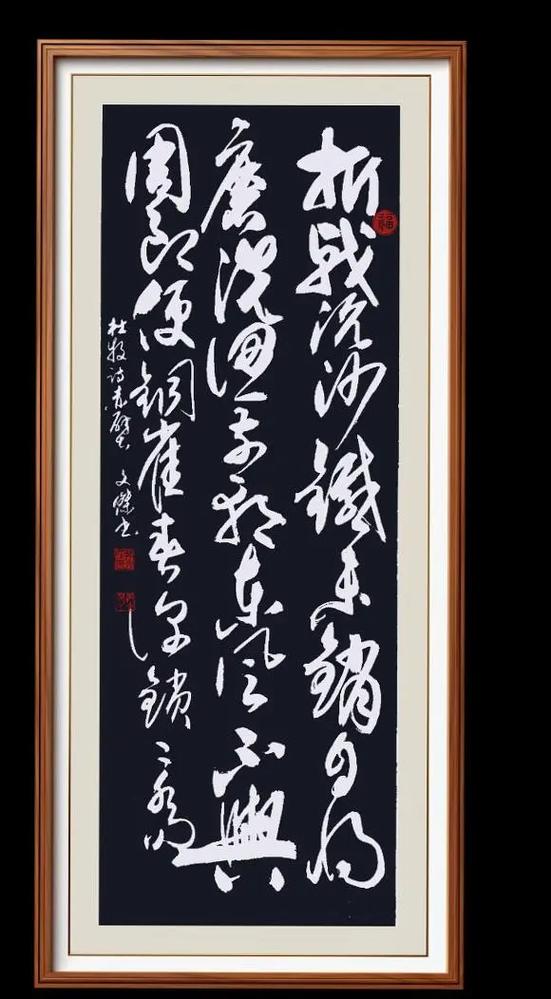 折戟沉沙鐵未銷自将
磨洗認前朝東風不與
周郎便銅雀春深鎖二喬
杜牧诗赤壁 文傑书
福